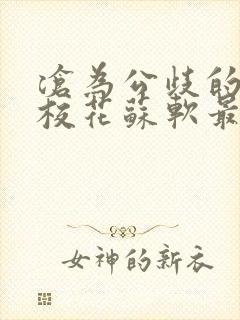 淪為公歧的
校花蘇軟最
女神的新衣